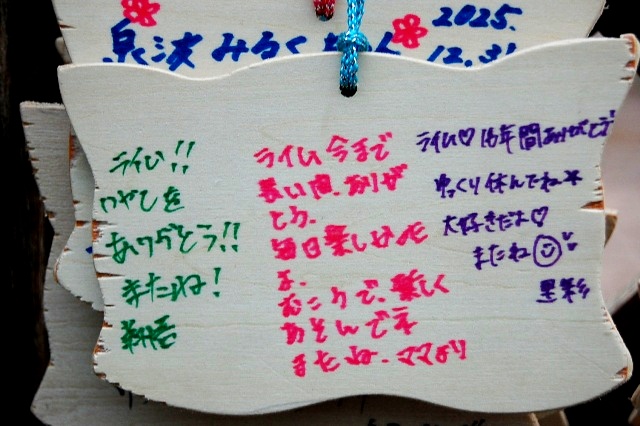 2025.
12.31
ライム!!
いやしを
ありがとう!!
またね!
ライム今まで
長い間、ありが
とう。
毎日楽しかった
よ。
むこうで、楽しく
あそんでネ
またね。ママより
ライム♡16年間ありがとう!
ゆっくり休んでね
大好きだよ♡
またね
星彩